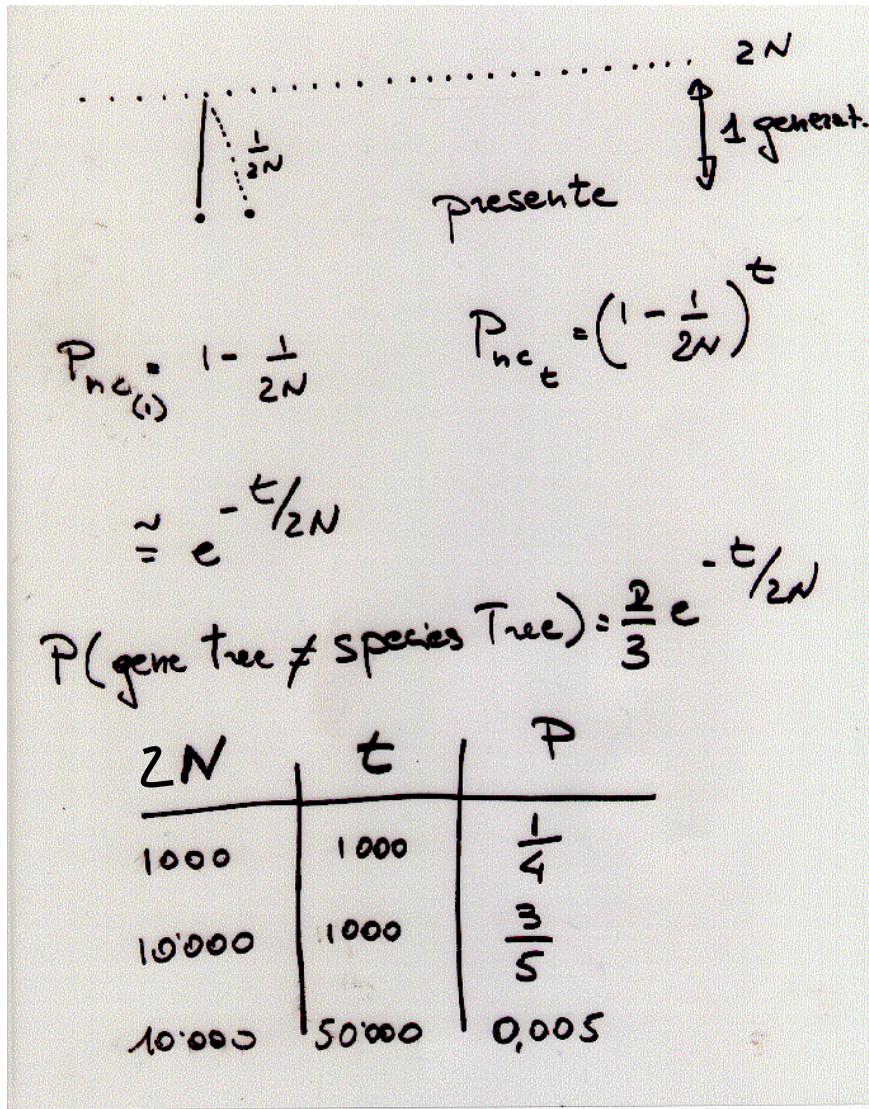 2N
1/2N
1 generat.
presente
Pnc(1) = 1 - 1/2N
Pnc t = (1 - 1/2N)^t
≅ e^-t/2N
P(gene tree ≠ species Tree) = 2/3 e^-t/2N
2N t P
1000 1000 1/4
10'000 1000 3/5
10'000 50'000 0,005